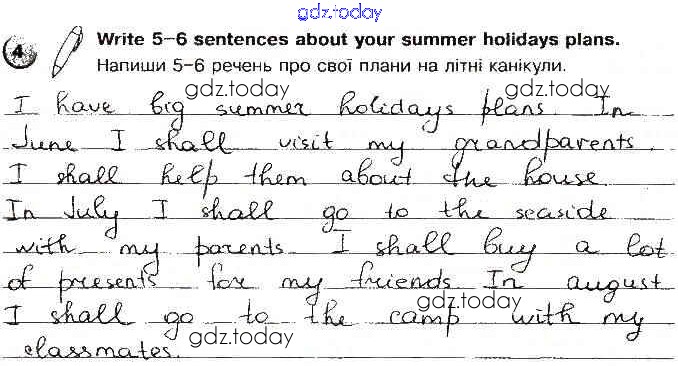 gdz.today
4 Write 5–6 sentences about your summer holidays plans.
Напиши 5–6 речень про свої плани на літні канікули.
gdz.today gdz.today
I have big summer holidays plans. In
June I shall visit my grandparents.
gdz.today gdz.today
I shall help them about the house
In July I shall go to the seaside
with my parents. I shall buy a lot
of presents for my friends. In august
gdz.today
I shall go to the camp with my
gdz.today
classmates.